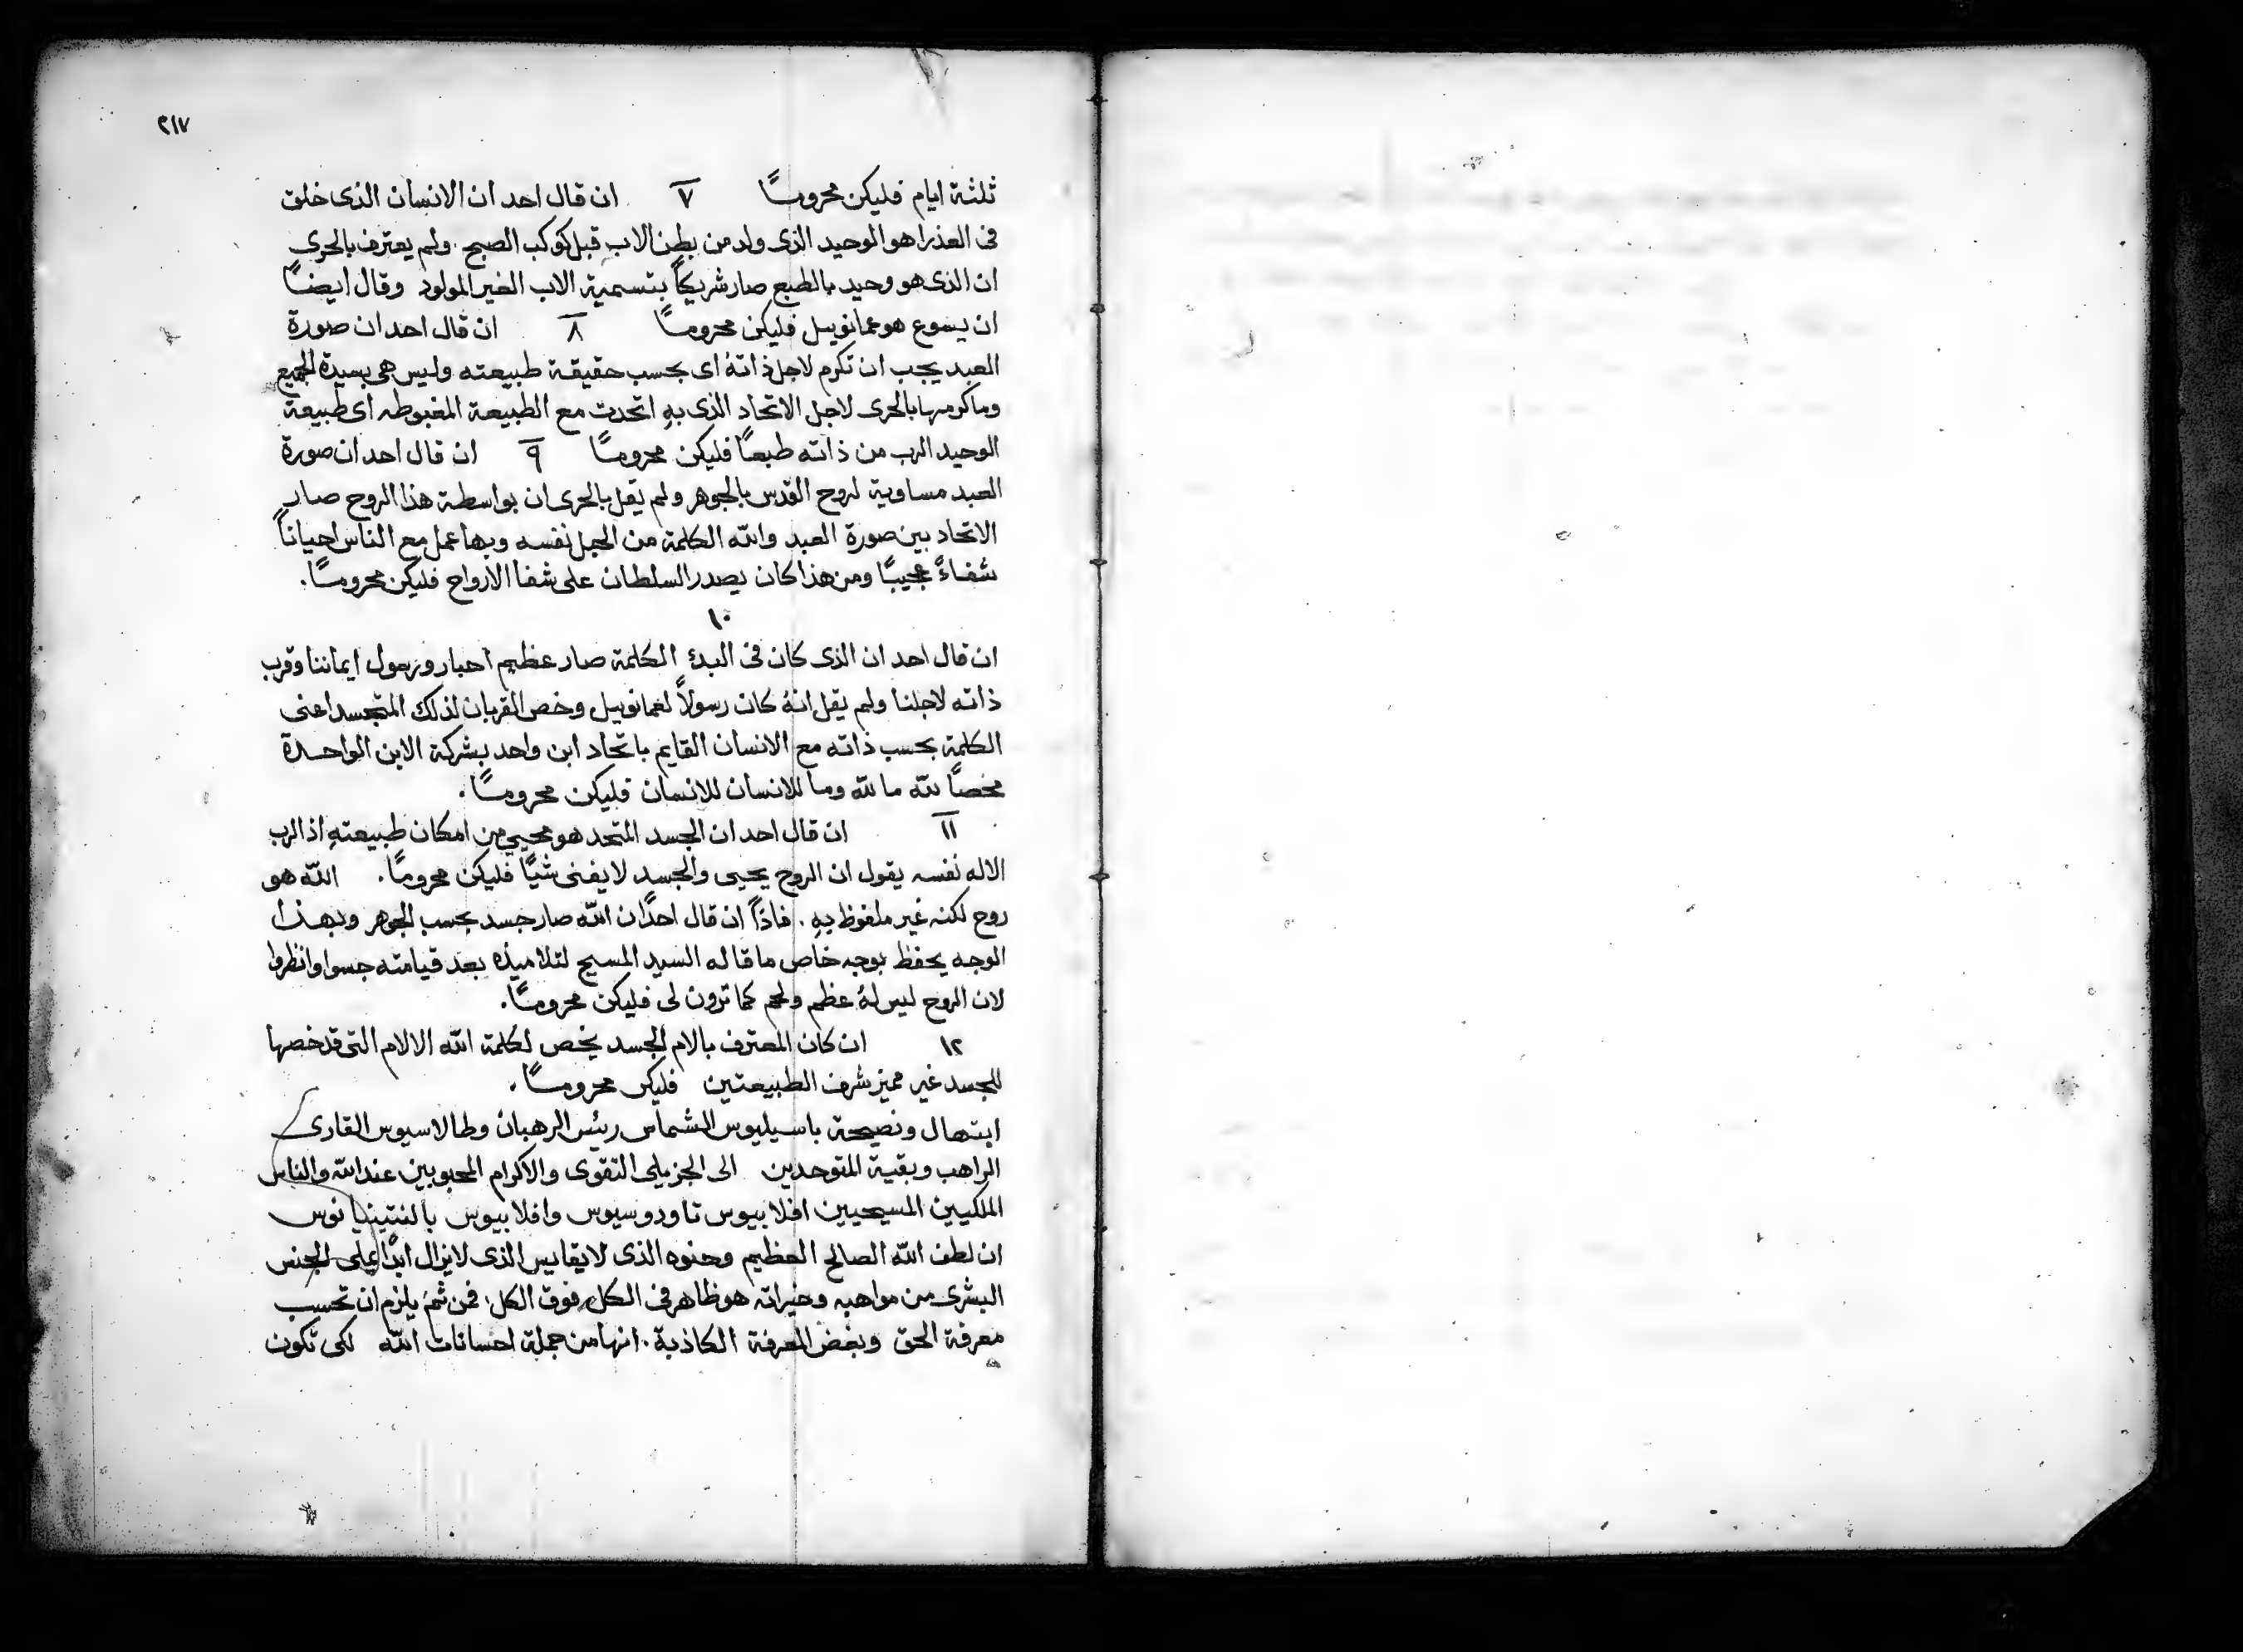 ٢١٧
ثلثة ايام فليكن محرومًا ٧ ان قال احد ان الانسان الذى خلق
فى العذرا هو الوحيد الذى ولد من بطن الاب قبل كوكب الصبح. ولم يعترف بالحرى
ان الذى هو وحيد بالطبع صار شريكاً بتسمية الاب الغير المولود وقال ايضاً
ان يسوع هو عمانوييل فليكن محروماً ٨ ان قال احد ان صورة
العبد يجب ان تكرم لاجل ذاتهُ اى بحسب حقيقة طبيعته وليس هى بسيدة الجميع
وما كرمها بالحرى لاجل الاتحاد الذى بهِ اتحدت مع الطبيعة المغبوطه اى طبيعة
الوحيد الرب من ذاته طبعاً فليكن محرومًا ٩ ان قال احد ان صورة
العبد مساوية لروح القدس بالجوهر ولم يقل بالحرى ان بواسطة هذا الروح صار
الاتحاد بين صورة العبد والله الكلمة من الحبل نفسه وبها عمل مع الناس احياناً
شفاءً عجيبًا ومن هذا كان يصدر السلطان على شفا الارواح فليكن محرومًا.
١٠
ان قال احد ان الذى كان فى البدء الكلمة صار عظيم احبار ورسول ايماننا وقرب
ذاته لاجلنا ولم يقل انهُ كان رسولاً لعمانوييل وخص القربان لذلك المتجسد اعنى
الكلمة بحسب ذاته مع الانسان القايم باتحاد ابن واحد بشركة الابن الواحدة
مخصاً لله ما لله وما للانسان للانسان فليكن محروماً.
١١ ان قال احد ان الجسد المتحد هو محيي من امكان طبيعتهِ اذ الرب
الاله نفسه يقول ان الروح يحيى والجسد لا يغنى شيًا فليكن محرومًا. الله هو
روح لكنه غير ملفوظ بهِ. فاذاً ان قال احدًا ان الله صار جسد بحسب الجوهر وبهذا
الوجه يحفظ بوجه خاص ما قاله السيد المسيح لتلاميذه بعد قيامته جسوا وانظروا
لان الروح ليس لهُ عظم ولحم كما ترون لى فليكن محرومًا.
١٢ ان كان المعترف بالام الجسد يخص لكلمة الله الالام التى قد خصها
للجسد غير مميز شرف الطبيعتين فليكن محرومًا.
ابتهال ونصيحة باسيليوس الشماس ريئس الرهبان وطالاسيوس القارى
الراهب وبقية المتوحدين الى الجزيلى التقوى والاكرام المحبوبين عند الله والناس
الملكيين المسيحيين افلابيوس تاودوسيوس وافلابيوس بالنتينيانوس
ان لطف الله الصالح العظيم وحنوه الذى لا يقايس الذى لا يزال ابدًا على الجنس
البشرى من مواهبه وخيراته هو ظاهر فى الكل وفوق الكل فمن ثمَ يلزم ان تحسب
معرفة الحق وبغض المعرفة الكاذبة. انها من جملة احسانات الله لكى تكون